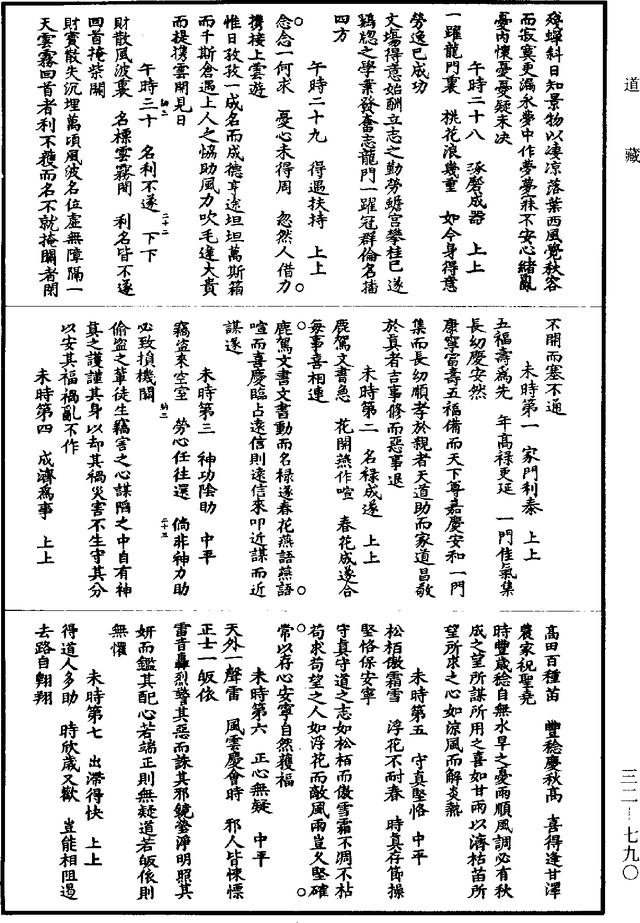 道藏
殘蟬斜日知景物以凄涼落葉西風覺秋容
而寂寞更漏永夢中作夢夢寐不安心緒亂
憂內懷憂憂疑未决
午時二十八　琢磨成器　上上
一躍龍門裏　桃花浪幾重　如今身得意
勞逸已成功
文場得意始酬立志之勤勞蟾宮攀桂已遂
鷄牕之學業發奮志龍門一躍冠群倫名播
四方
午時二十九　得遇扶持　上上
念念一何求　憂心未得周　忽然人借力
携接上雲遊
惟日孜孜一成名而成德亨途坦坦萬斯箱
而千斯倉遇上人之恊助風力吹毛逢大貴
而提携雲開見日
午時三十　名利不遂　下下
財散風波裏　名標雲霧間　利名皆不遂
回首掩柴關
財寳散失沉埋萬頃風波名位虛無障隔一
天雲霧回首者利不穫而名不就掩關者閉
不開而塞不通
未時第一　家門利泰　上上
五福壽爲先　年高祿更延　一門佳氣集
長幼慶安然
康寧富壽五福備而天下尊嘉慶安和一門
集而長幼順孝於親者天道助而家道昌敬
於真者吉事修而惡事退
未時第二　名禄成遂　上上
鹿駕文書急　花開燕作喧　春花成遂合
每事喜相連
鹿駕文書文書動而名禄遂春花燕語燕語
喧而喜慶臨占逺信則逺信來叩近謀而近
謀遂
未時第三　神功陰助　中平
竊盜來空室　勞心任往還　倘非神力助
必致損機關
偷盜之軰徒生竊害之心謀陷之中自有神
真之護謹其身以却其禍災害不生守其分
以安其福禍亂不作
未時第四　成濟爲事　上上
高田百種苗　豐稔慶秋高　喜得逢甘澤
農家祝聖堯
時豐歲稔自無水旱之憂雨順風調必有秋
成之望所謀所用之喜如甘雨以濟枯苗所
望所求之心如涼風而解炎熱
未時第五　守真堅恪　中平
松栢傲霜雪　浮花不耐春　時真存節操
堅恪保安寧
守真守道之志如松栢而傲雪霜不凋不枯
苟求苟望之人如浮花而敵風雨豈乆堅確
常以存心安寧自然獲福
未時第六　正心無疑　中平
天外一聲雷　風雲慶會時　邪人皆悚慄
正士一皈依
雷音轟烈警其惡而誅其邪鏡瑩淨明照其
妍而鑑其配心若端正則無疑道若皈依則
無懼
未時第七　出滯得快　上上
得道人多助　時欣歲又歡　豈能相阻遏
去路自翱翔
三二—七九〇